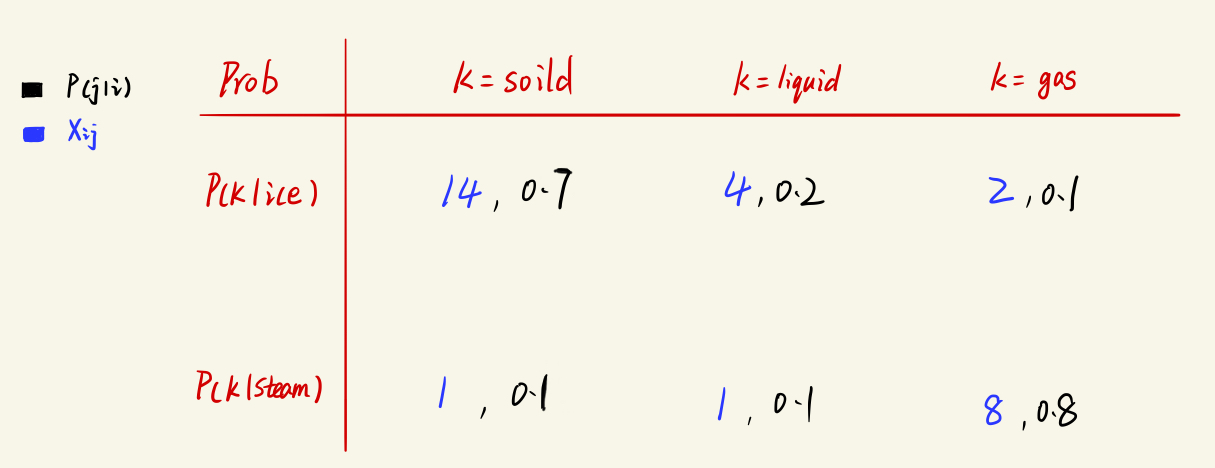 P(j|i)
Xij
Prob k=soild k=liquid k=gas
P(k|ice) 14, 0.7 4, 0.2 2, 0.1
P(k|steam) 1, 0.1 1, 0.1 8, 0.8